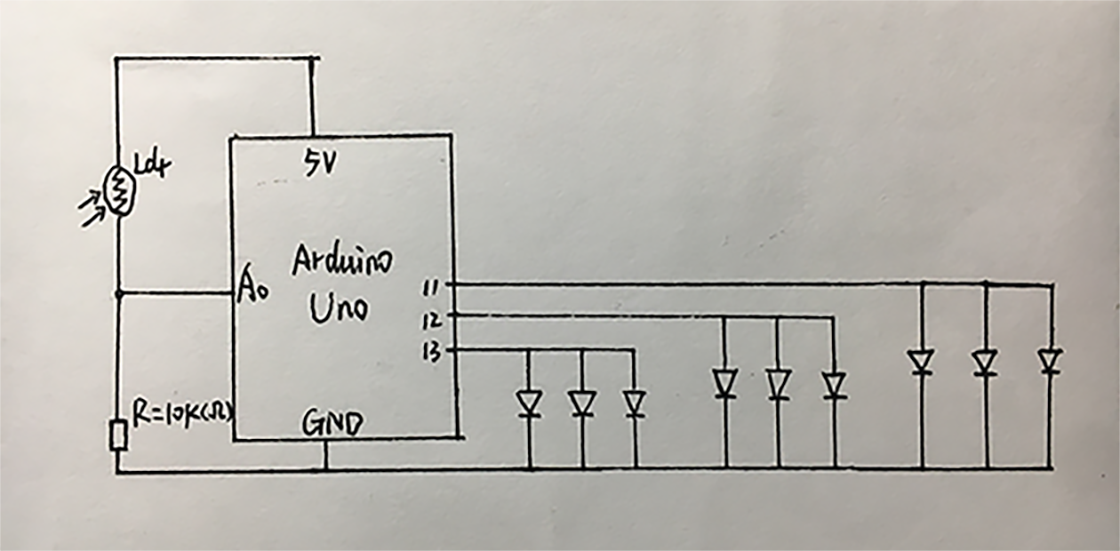 5V
Ldr
Arduino
Uno
A0
11
12
13
R=10K(Ω)
GND